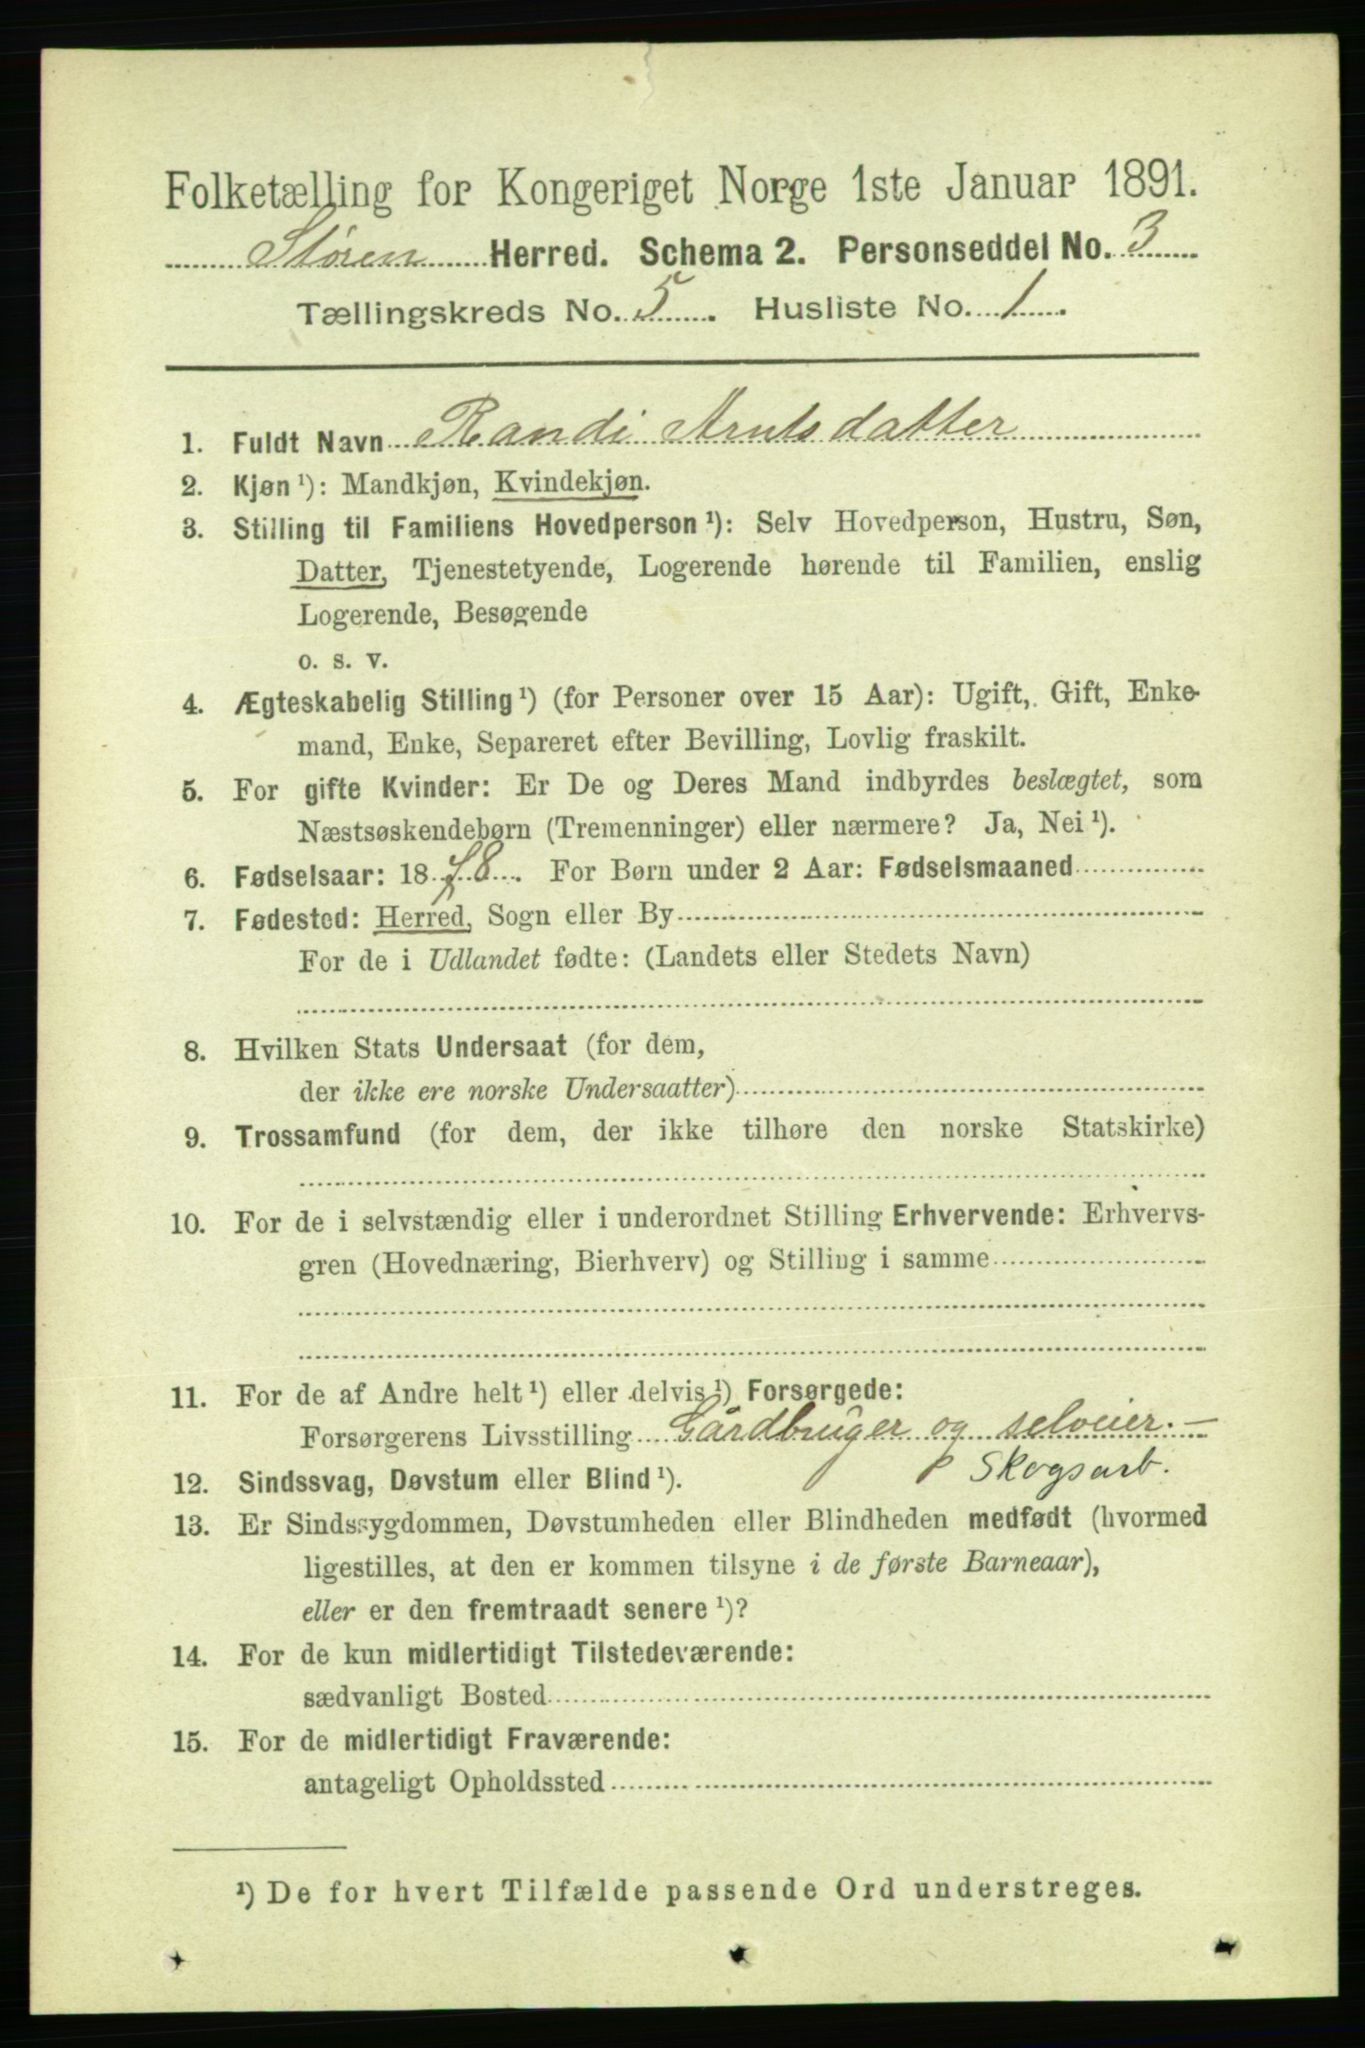 Folketælling for Kongeriget Norge 1ste Januar 1891.
Støren Herred. Schema 2. Personseddel No. 3
Tællingskreds No. 5. Husliste No. 1.
1. Fuldt Navn Randi Arntsdatter
2. Kjøn ¹): Mandkjøn, Kvindekjøn.
3. Stilling til Familiens Hovedperson ¹): Selv Hovedperson, Hustru, Søn,
Datter, Tjenestetyende, Logerende hørende til Familien, enslig
Logerende, Besøgende
o. s. v.
4. Ægteskabelig Stilling ¹) (for Personer over 15 Aar): Ugift, Gift, Enke-
mand, Enke, Separeret efter Bevilling, Lovlig fraskilt.
5. For gifte Kvinder: Er De og Deres Mand indbyrdes beslægtet, som
Næstsøskendebørn (Tremenninger) eller nærmere? Ja, Nei ¹).
6. Fødselsaar: 1878. For Børn under 2 Aar: Fødselsmaaned
7. Fødested: Herred, Sogn eller By
For de i Udlandet fødte: (Landets eller Stedets Navn)
8. Hvilken Stats Undersaat (for dem,
der ikke ere norske Undersaatter)
9. Trossamfund (for dem, der ikke tilhøre den norske Statskirke)
10. For de i selvstændig eller i underordnet Stilling Erhvervende: Erhvervs-
gren (Hovednæring, Bierhverv) og Stilling i samme
11. For de af Andre helt ¹) eller delvis ¹) Forsørgede:
Forsørgerens Livsstilling Gårdbruger og selveier. —
Skogsarb.
12. Sindssvag, Døvstum eller Blind ¹).
13. Er Sindssygdommen, Døvstumheden eller Blindheden medfødt (hvormed
ligestilles, at den er kommen tilsyne i de første Barneaar),
eller er den fremtraadt senere ¹)?
14. For de kun midlertidigt Tilstedeværende:
sædvanligt Bosted
15. For de midlertidigt Fraværende:
antageligt Opholdssted
¹) De for hvert Tilfælde passende Ord understreges.